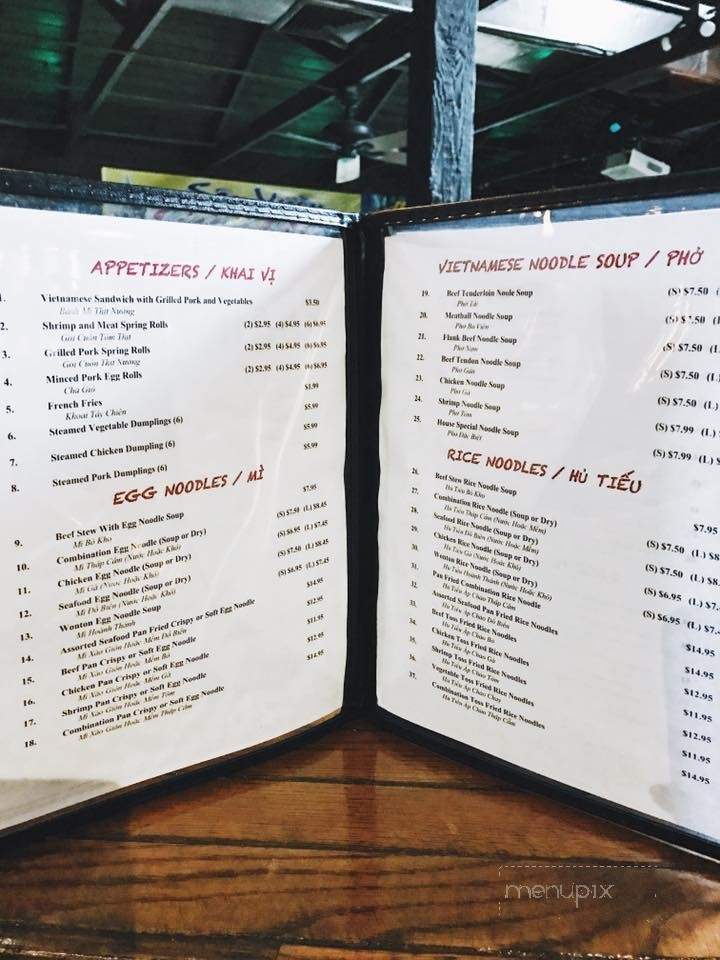 APPETIZERS / KHAI VỊ
1. Vietnamese Sandwich with Grilled Pork and Vegetables $3.50
Bánh Mì Thịt Nướng
2. Shrimp and Meat Spring Rolls (2) $2.95 (4) $4.95 (6) $6.95
Gỏi Cuốn Tôm Thịt
3. Grilled Pork Spring Rolls (2) $2.95 (4) $4.95 (6) $6.95
Gỏi Cuốn Thịt Nướng
4. Minced Pork Egg Rolls (2) $2.95 (4) $4.95 (6) $6.95
Chả Giò
5. French Fries $1.99
Khoai Tây Chiên
6. Steamed Vegetable Dumplings (6) $5.99
7. Steamed Chicken Dumpling (6) $5.99
8. Steamed Pork Dumplings (6) $5.99
EGG NOODLES / MÌ
9. Beef Stew With Egg Noodle Soup $7.95
Mì Bò Kho
10. Combination Egg Noodle (Soup or Dry) (S) $7.50 (L) $8.45
Mì Thập Cẩm (Nước Hoặc Khô)
11. Chicken Egg Noodle (Soup or Dry) (S) $6.95 (L) $7.45
Mì Gà (Nước Hoặc Khô)
12. Seafood Egg Noodle (Soup or Dry) (S) $7.50 (L) $8.45
Mì Đồ Biển (Nước Hoặc Khô)
13. Wonton Egg Noodle Soup (S) $6.95 (L) $7.45
Mì Hoành Thánh
14. Assorted Seafood Pan Fried Crispy or Soft Egg Noodle $14.95
Mì Xào Giòn Hoặc Mềm Đồ Biển
15. Beef Pan Crispy or Soft Egg Noodle $12.95
Mì Xào Giòn Hoặc Mềm Bò
16. Chicken Pan Crispy or Soft Egg Noodle $11.95
Mì Xào Giòn Hoặc Mềm Gà
17. Shrimp Pan Crispy or Soft Egg Noodle $12.95
Mì Xào Giòn Hoặc Mềm Tôm
18. Combination Pan Crispy or Soft Egg Noodle $14.95
Mì Xào Giòn Hoặc Mềm Thập Cẩm
VIETNAMESE NOODLE SOUP / PHỞ
19. Beef Tenderloin Noole Soup (S) $7.50
Phở Tái
20. Meatball Noodle Soup (S) $7.50
Phở Bò Viên
21. Flank Beef Noodle Soup (S) $7.50 (L)
Phở Nạm
22. Beef Tendon Noodle Soup (S) $7.50 (L)
Phở Gân
23. Chicken Noodle Soup (S) $7.50 (L)
Phở Gà
24. Shrimp Noodle Soup (S) $7.99 (L)
Phở Tôm
25. House Special Noodle Soup (S) $7.99 (L)
Phở Đặc Biệt
RICE NOODLES / HỦ TIẾU
26. Beef Stew Rice Noodle Soup $7.95
Hủ Tiếu Bò Kho
27. Combination Rice Noodle (Soup or Dry) (S) $7.50 (L)
Hủ Tiếu Thập Cẩm (Nước Hoặc Mềm)
28. Seafood Rice Noodle (Soup or Dry) (S) $7.50 (L)
Hủ Tiếu Đồ Biển (Nước Hoặc Mềm)
29. Chicken Rice Noodle (Soup or Dry) (S) $6.95 (L)
Hủ Tiếu Gà (Nước Hoặc Khô)
30. Wonton Rice Noodle Soup (S) $6.95 (L)
Hủ Tiếu Hoành Thánh (Nước Hoặc Khô)
31. Pan Fried Combination Rice Noodle $14.95
Hủ Tiếu Áp Chảo Thập Cẩm
32. Assorted Seafood Pan Fried Rice Noodles $14.95
Hủ Tiếu Áp Chảo Đồ Biển
33. Beef Toss Fried Rice Noodles $12.95
Hủ Tiếu Áp Chảo Bò
34. Chicken Toss Fried Rice Noodles $11.95
Hủ Tiếu Áp Chảo Gà
35. Shrimp Toss Fried Rice Noodles $12.95
Hủ Tiếu Áp Chảo Tôm
36. Vegetable Toss Fried Rice Noodles $11.95
Hủ Tiếu Áp Chảo Chay
37. Combination Toss Fried Rice Noodles $14.95
Hủ Tiếu Áp Chảo Thập Cẩm
menupix